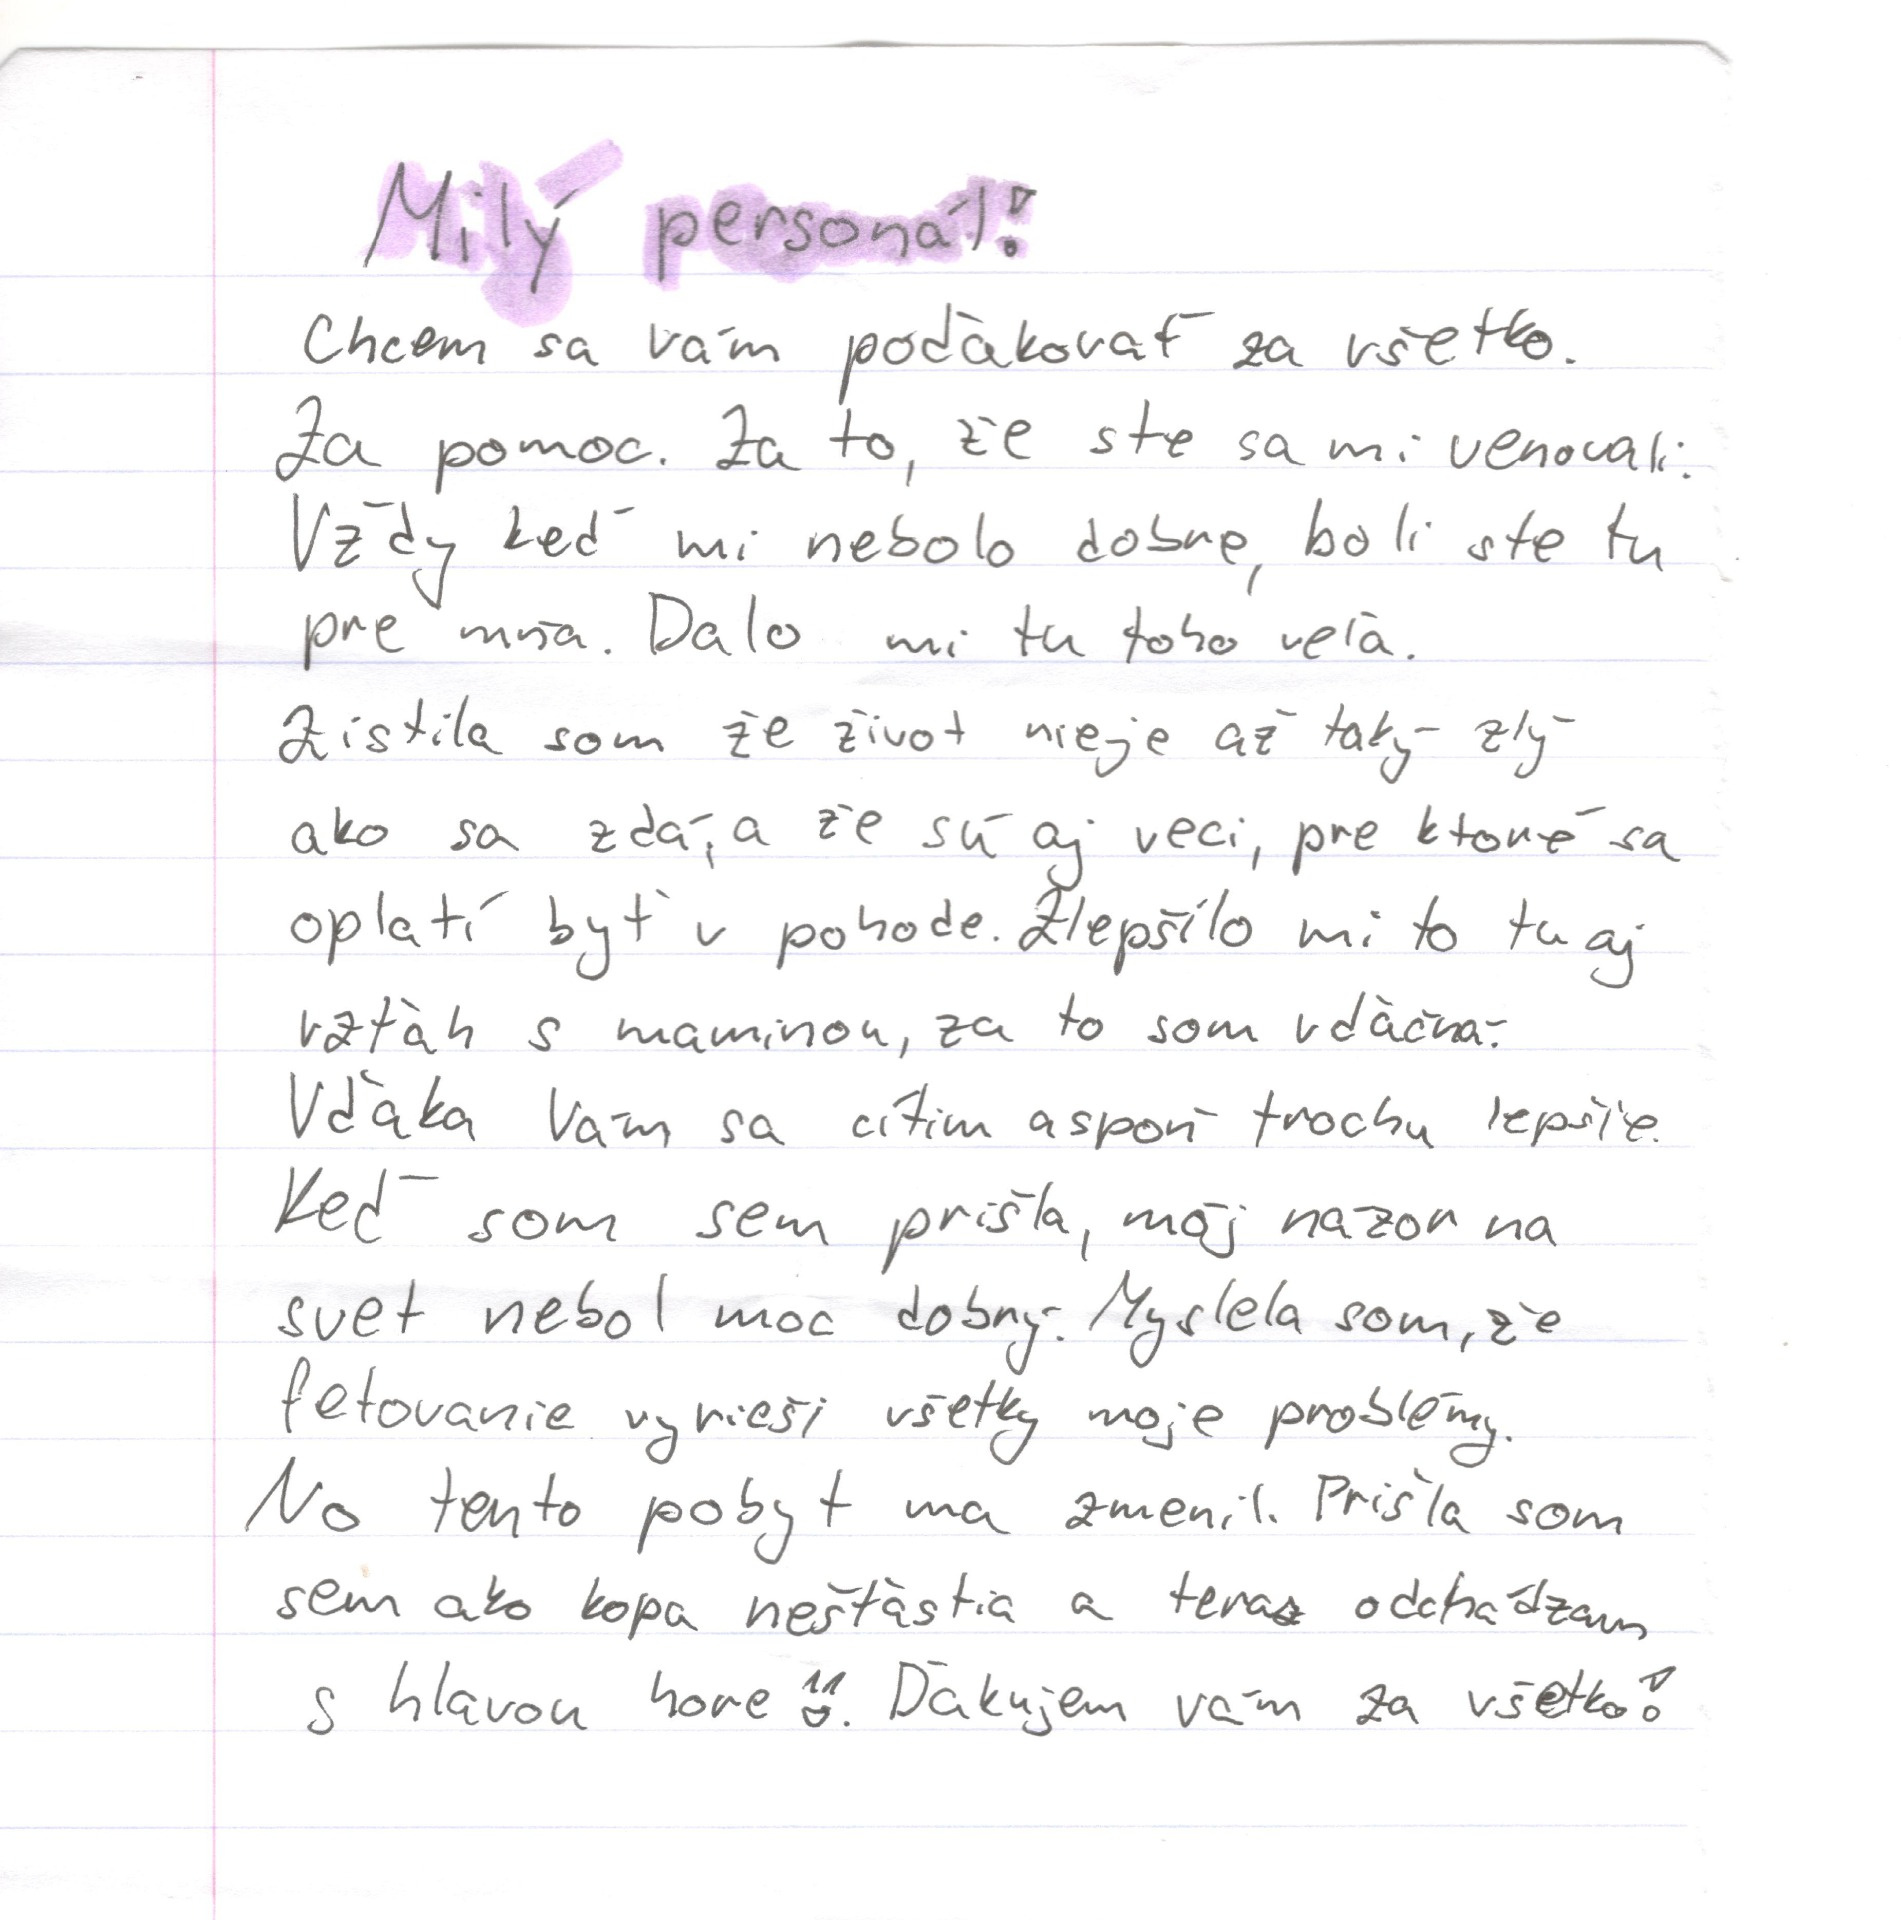 Milý personál!
Chcem sa vám poďakovať za všetko.
Za pomoc. Za to, že ste sa mi venovali.
Vždy keď mi nebolo dobre, boli ste tu
pre mňa. Dalo mi tu toho veľa.
Zistila som že život nieje až taký zlý
ako sa zdá, a že sú aj veci, pre ktoré sa
oplatí byť v pohode. Zlepšilo mi to tu aj
vzťah s maminou, za to som vďačná.
Vďaka Vám sa cítim aspoň trochu lepšie.
Keď som sem prišla, môj názor na
svet nebol moc dobrý. Myslela som, že
fetovanie vyrieši všetky moje problémy.
No tento pobyt ma zmenil. Prišla som
sem ako kopa nešťastia a teraz odchádzam
s hlavou hore. Ďakujem vám za všetko!